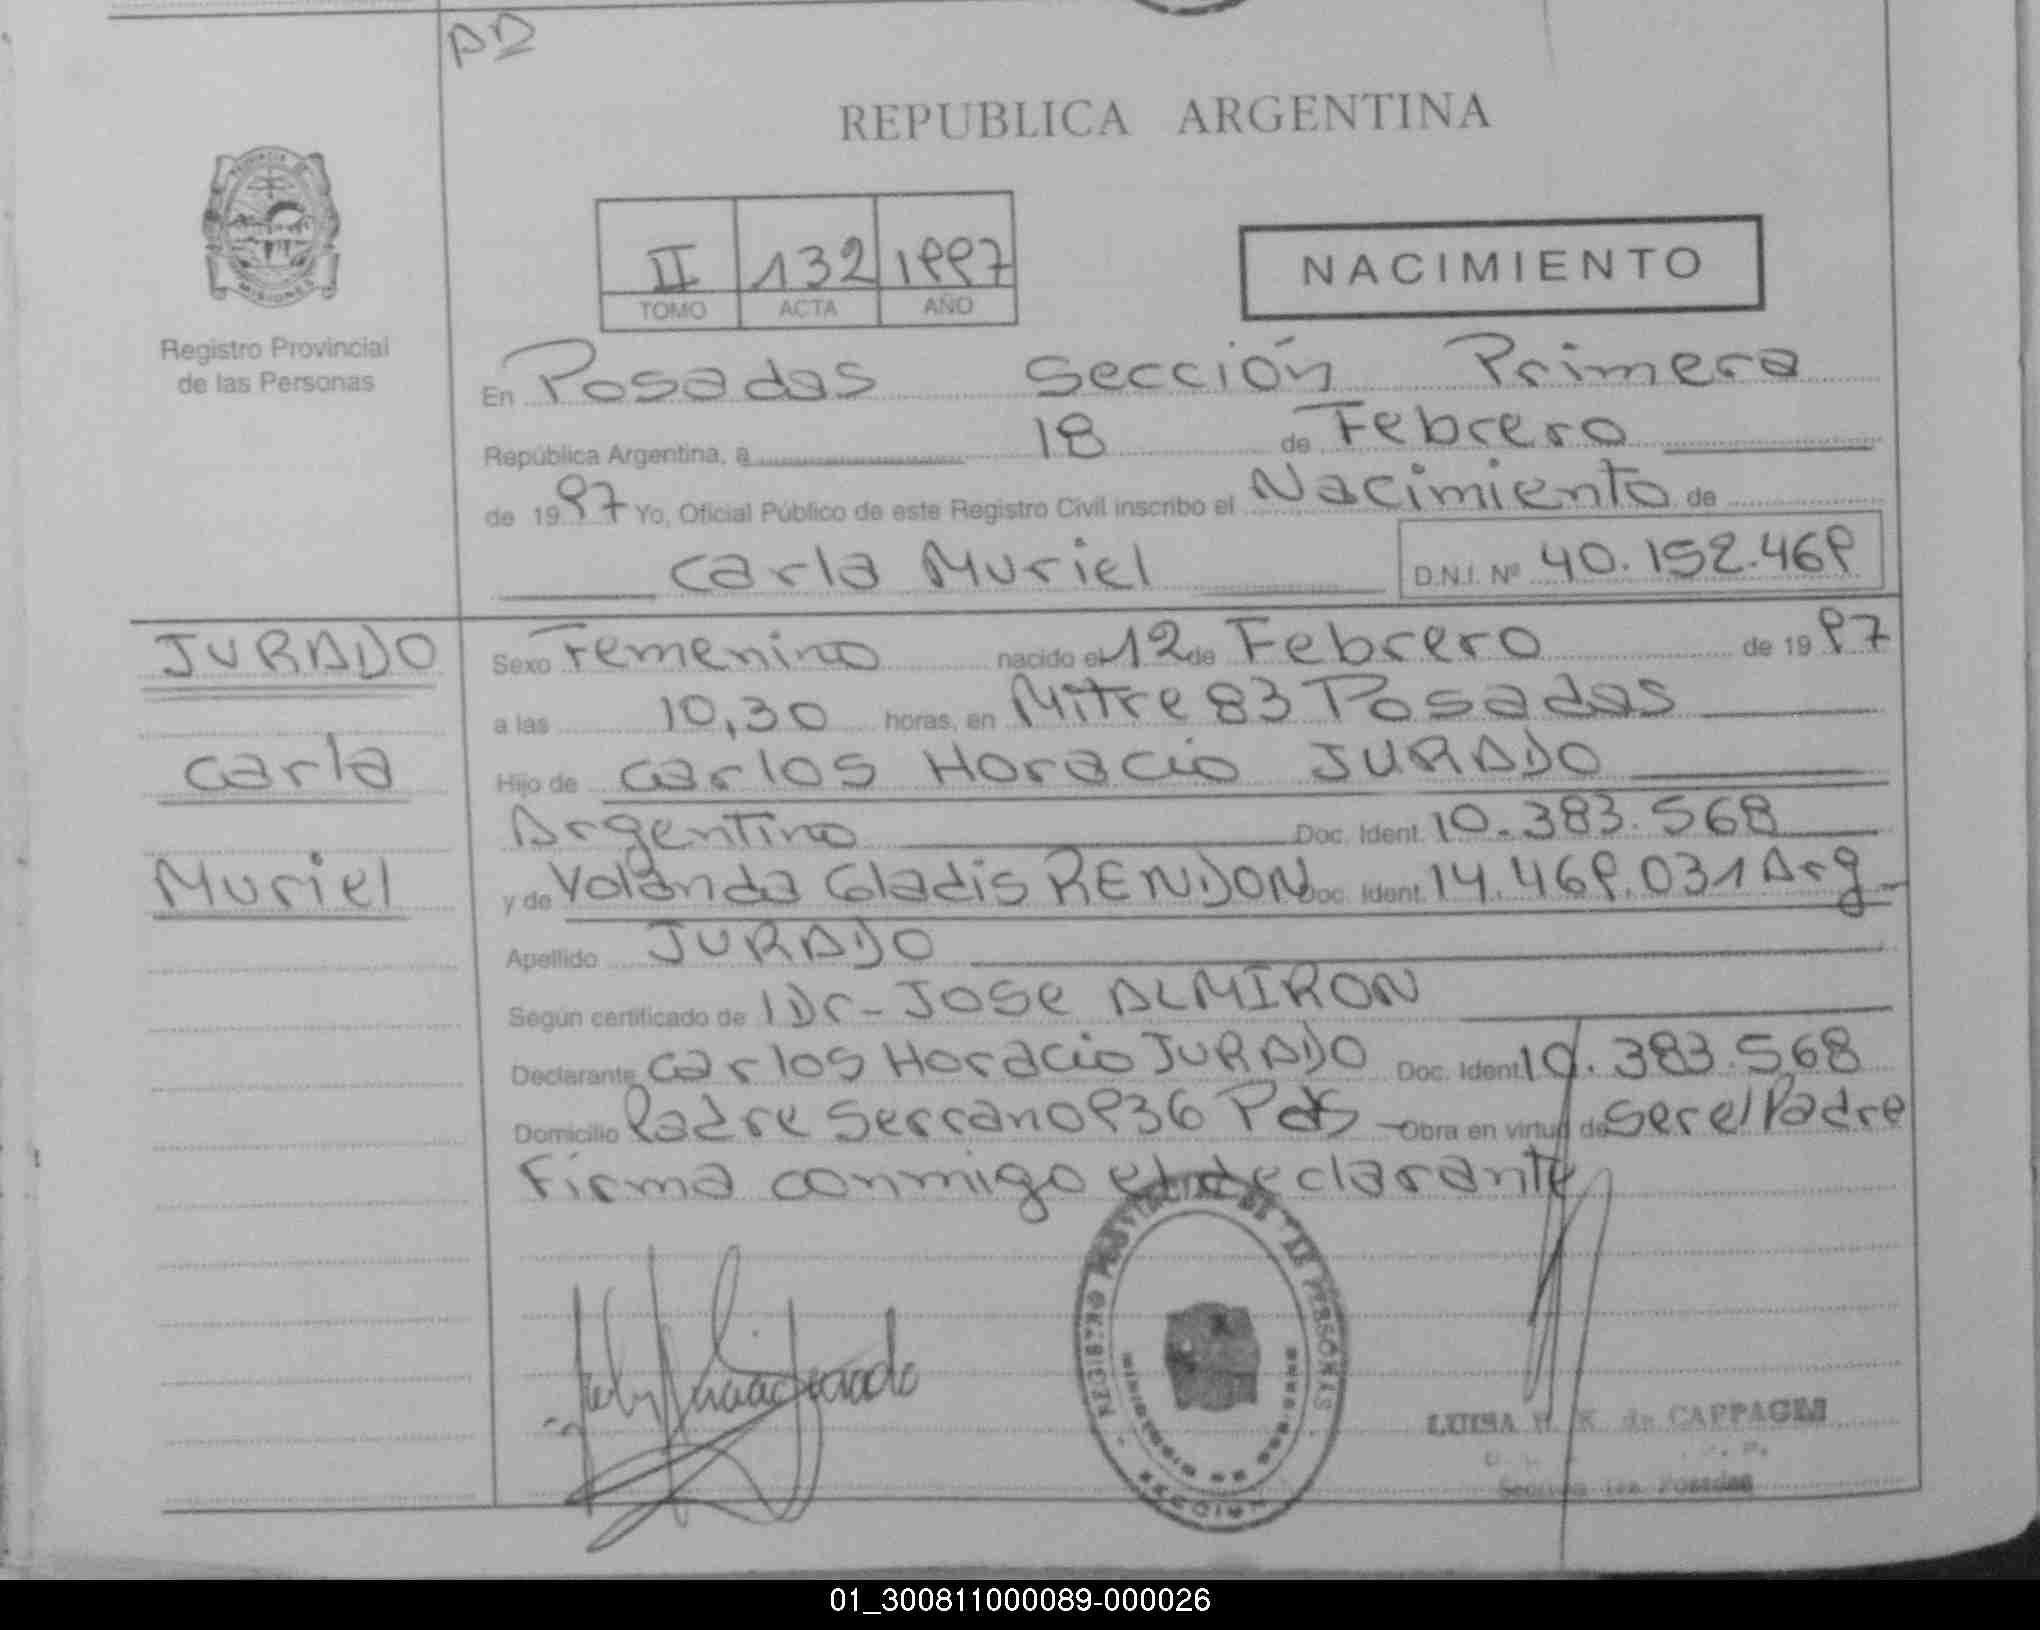 AD
REPUBLICA ARGENTINA
PROVINCIA DE
MISIONES
Registro Provincial
de las Personas
II 132 1997
TOMO ACTA AÑO
NACIMIENTO
En Posadas Sección Primera
República Argentina, a 18 de Febrero
de 1997 Yo, Oficial Público de este Registro Civil inscribo el Nacimiento de
Carla Muriel D.N.I. Nº 40.152.469
JURADO
Carla
Muriel
Sexo Femenino nacido el 12 de Febrero de 1997
a las 10,30 horas, en Mitre 83 Posadas
Hijo de Carlos Horacio JURADO
Argentino Doc. Ident. 10.383.568
y de Yolanda Gladis RENDON Doc. Ident. 14.469.031 Arg
Apellido JURADO
Según certificado de Dr- Jose ALMIRON
Declarante Carlos Horacio JURADO Doc. Ident. 10.383.568
Domicilio Padre Serrano 936 Pdas - Obra en virtud de ser el Padre
Firma conmigo el declarante
REGISTRO PROVINCIAL DE LAS PERSONAS
MINISTERIO DE GOBIERNO
MISIONES
LUISA de CAPPAGLI
Sección 1ra Posadas
01_300811000089-000026